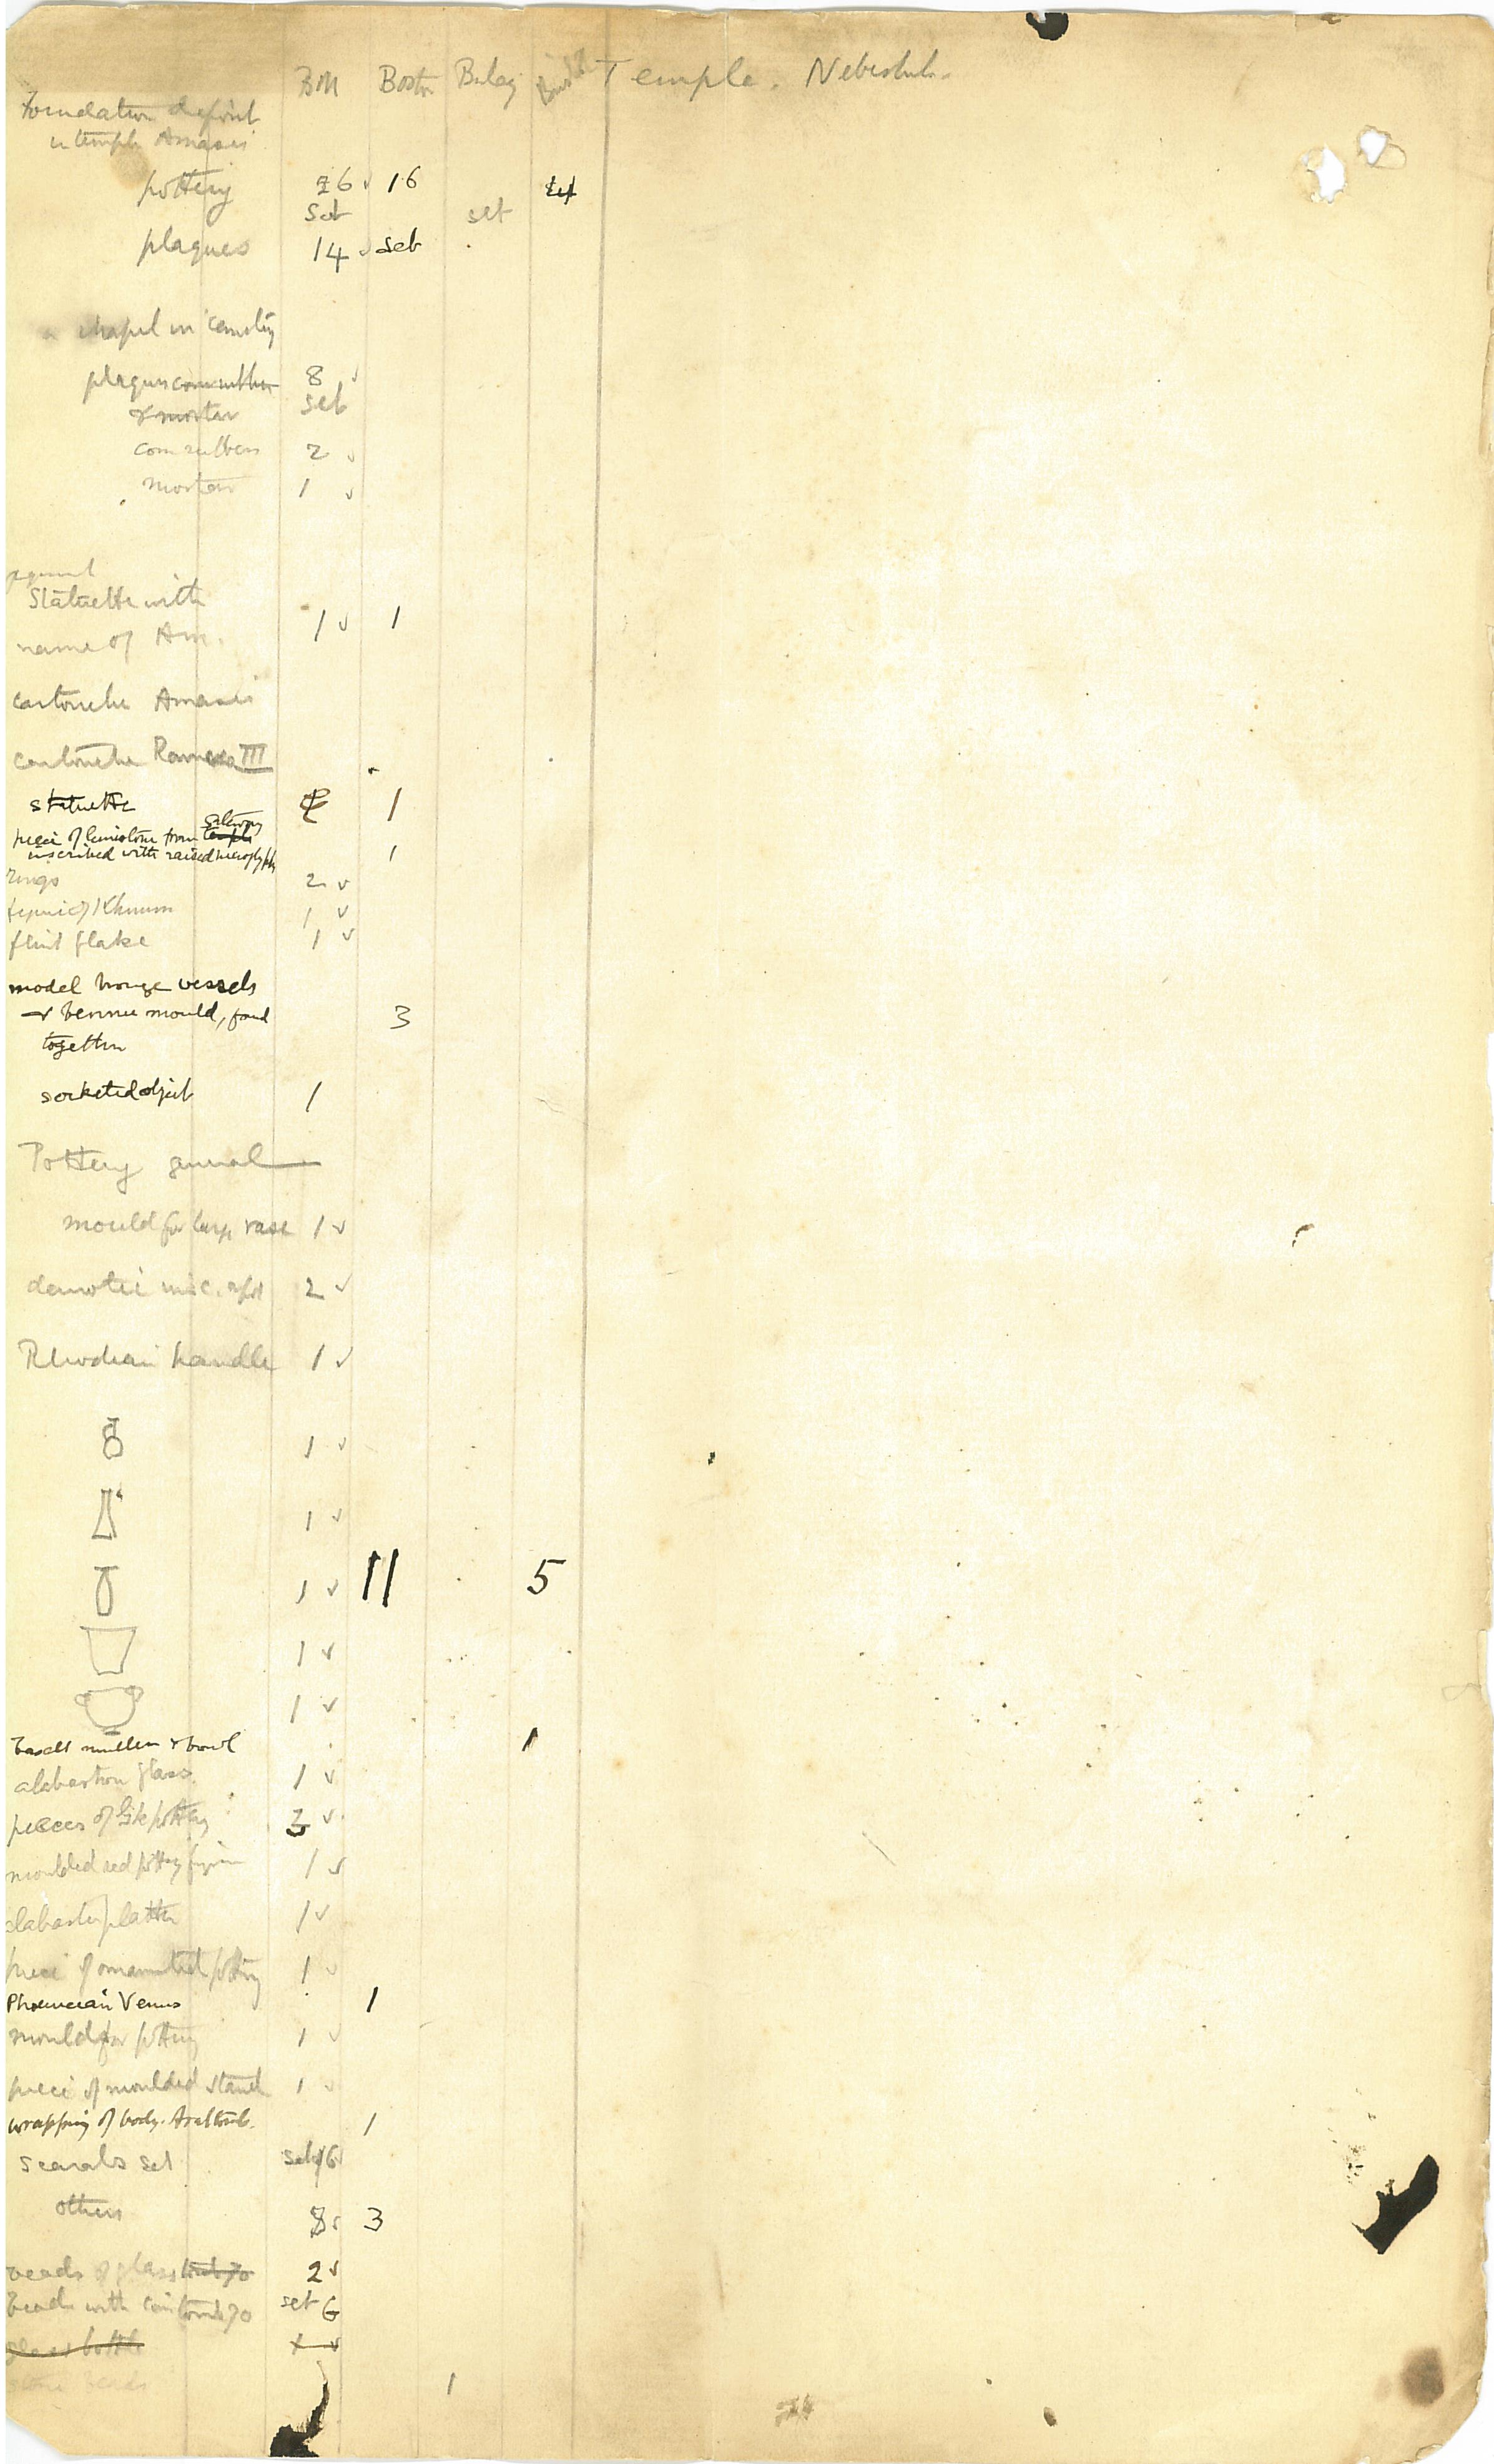 BM Boston Bulaq Temple. Nebesheh.
Foundation deposit
in temple Amasis
pottery 26 16 4
set set
plaques 14 set
chapel in cemetery
plaques corn rubber 8
& mortar set
corn rubbers 2
mortar 1
Statuette with
name of Am. 1 1
cartouche Amasis
cartouche Rameses III
statuette 1
gateway
piece of limestone from temple
inscribed with raised hieroglyphs 1
rings 2
figure of Khnum 1
flint flake 1
model bronze vessels
& bennu mould, found 3
together
socketed object 1
Pottery general
mould for large vase 1
demotic insc. 2
Rhodian handle 1
1
1
1 11 5
1
1
basalt muller & bowl 1
alabastron glass 1
pieces of Gk pottery 3
moulded red pottery figure 1
alabaster platter 1
piece of ornamented pottery 1
Phoenician Venus 1
mould for pottery 1
piece of moulded stand 1
wrapping of body. 1
scarabs set set 16
others 8 3
beads of glass tomb 70 2
beads with coin tomb 70 set 6
glass bottle 1
stone beads 1